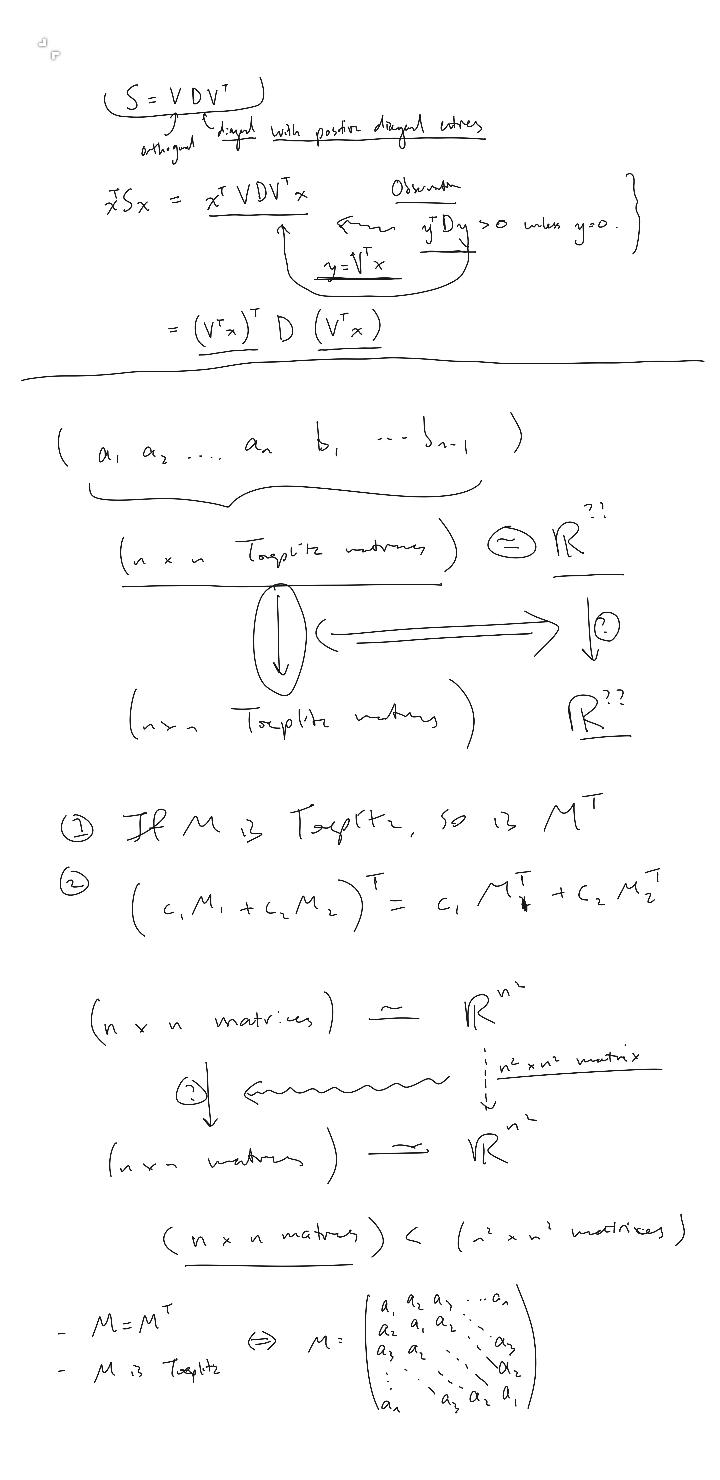 ( S = V D Vᵀ )
orthogonal diagonal with positive diagonal entries
xᵀSx = xᵀ V D Vᵀ x
Observation
yᵀDy > 0 unless y=0.
y = Vᵀx
= (Vᵀx)ᵀ D (Vᵀx)
( a₁ a₂ .... aₙ b₁ ... bₙ₋₁ )
(n × n Toeplitz matrices) ≃ ℝ^??
?
(n×n Toeplitz matrices) ℝ^??
① If M is Toeplitz, so is Mᵀ
② (c₁M₁ + c₂M₂)ᵀ = c₁M₁ᵀ + c₂M₂ᵀ
(n × n matrices) ≃ ℝ^n²
? n² × n² matrix
(n×n matrices) ≃ ℝ^n²
(n × n matrices) < (n² × n² matrices)
- M = Mᵀ
- M is Toeplitz
⇔ M =
a₁ a₂ a₃ ... aₙ
a₂ a₁ a₂
a₃ a₂ a₃
⋮ a₂
aₙ a₃ a₂ a₁